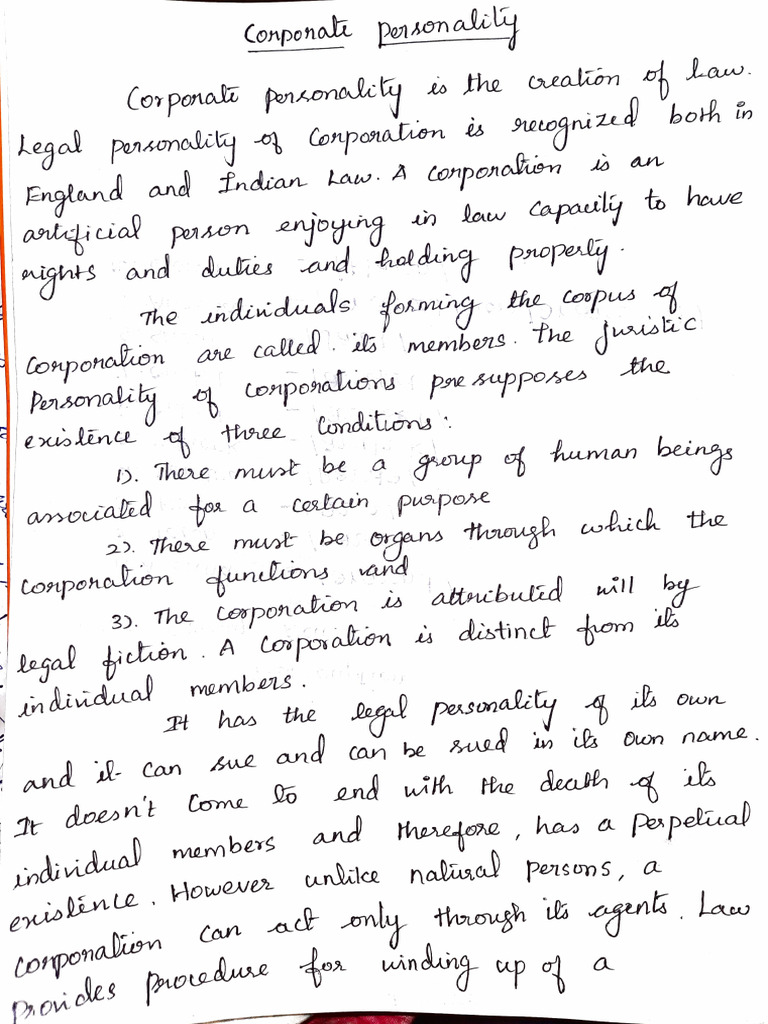 Corporate Personality
Corporate personality is the creation of Law.
Legal personality of Corporation is recognized both in
England and Indian Law. A corporation is an
artificial person enjoying in law capacity to have
rights and duties and holding property.
The individuals forming the corpus of
Corporation are called its members. The Juristic
Personality of corporations presupposes the
existence of three Conditions:
1). There must be a group of human beings
associated for a certain purpose
2). There must be organs through which the
corporation functions and
3). The corporation is attributed will by
legal fiction. A Corporation is distinct from its
individual members.
It has the legal personality of its own
and it can sue and can be sued in its own name.
It doesn't come to end with the death of its
individual members and therefore, has a perpetual
existence. However unlike natural persons, a
corporation can act only through its agents. Law
Provides procedure for winding up of a